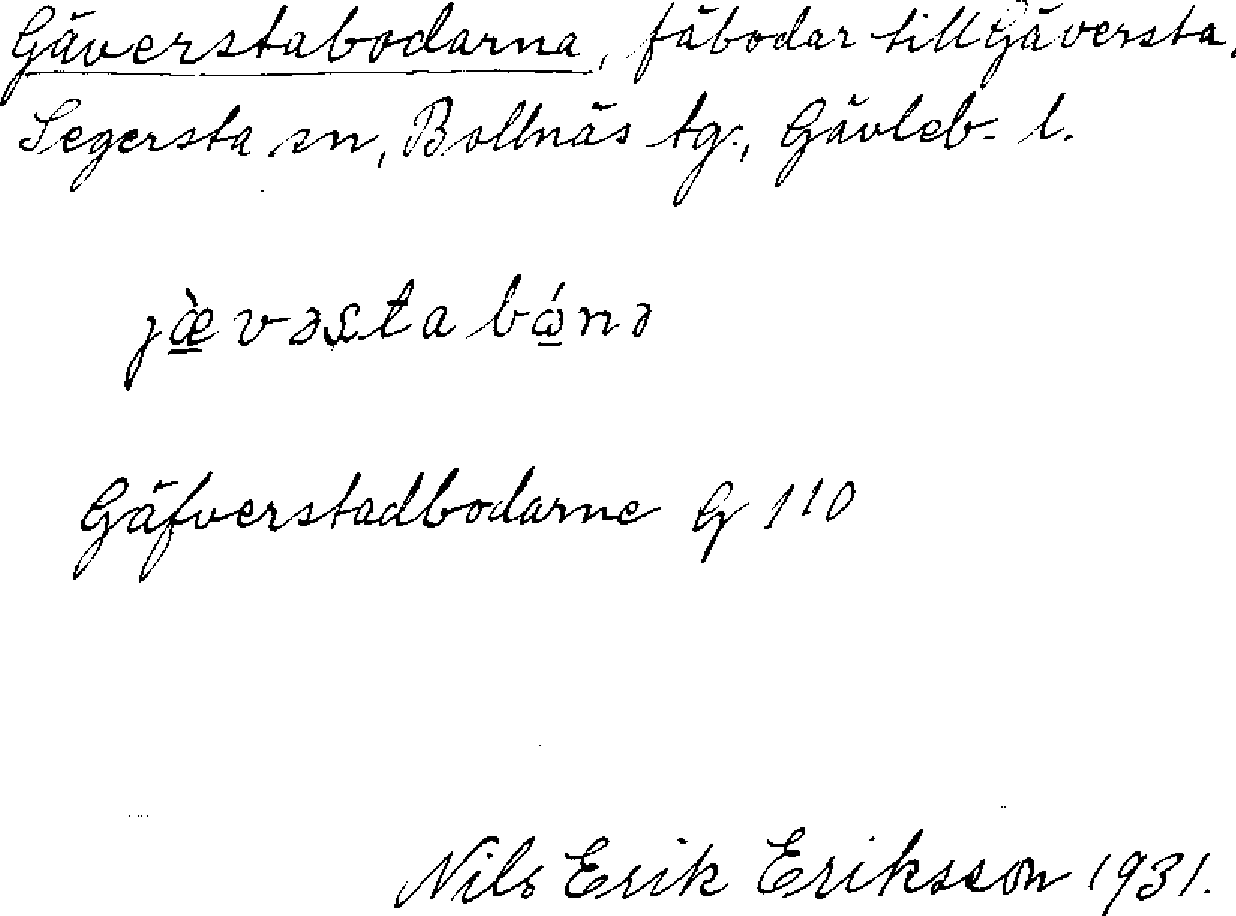 Gäverstabodarna, fäbodar till Gäversta,
Segersta sn, Bollnäs tg., Gävleb. l.
jæ̠̀vəsta bɷ̠́nə
Gäfverstadbodarne G 110
Nils Erik Eriksson 1931.